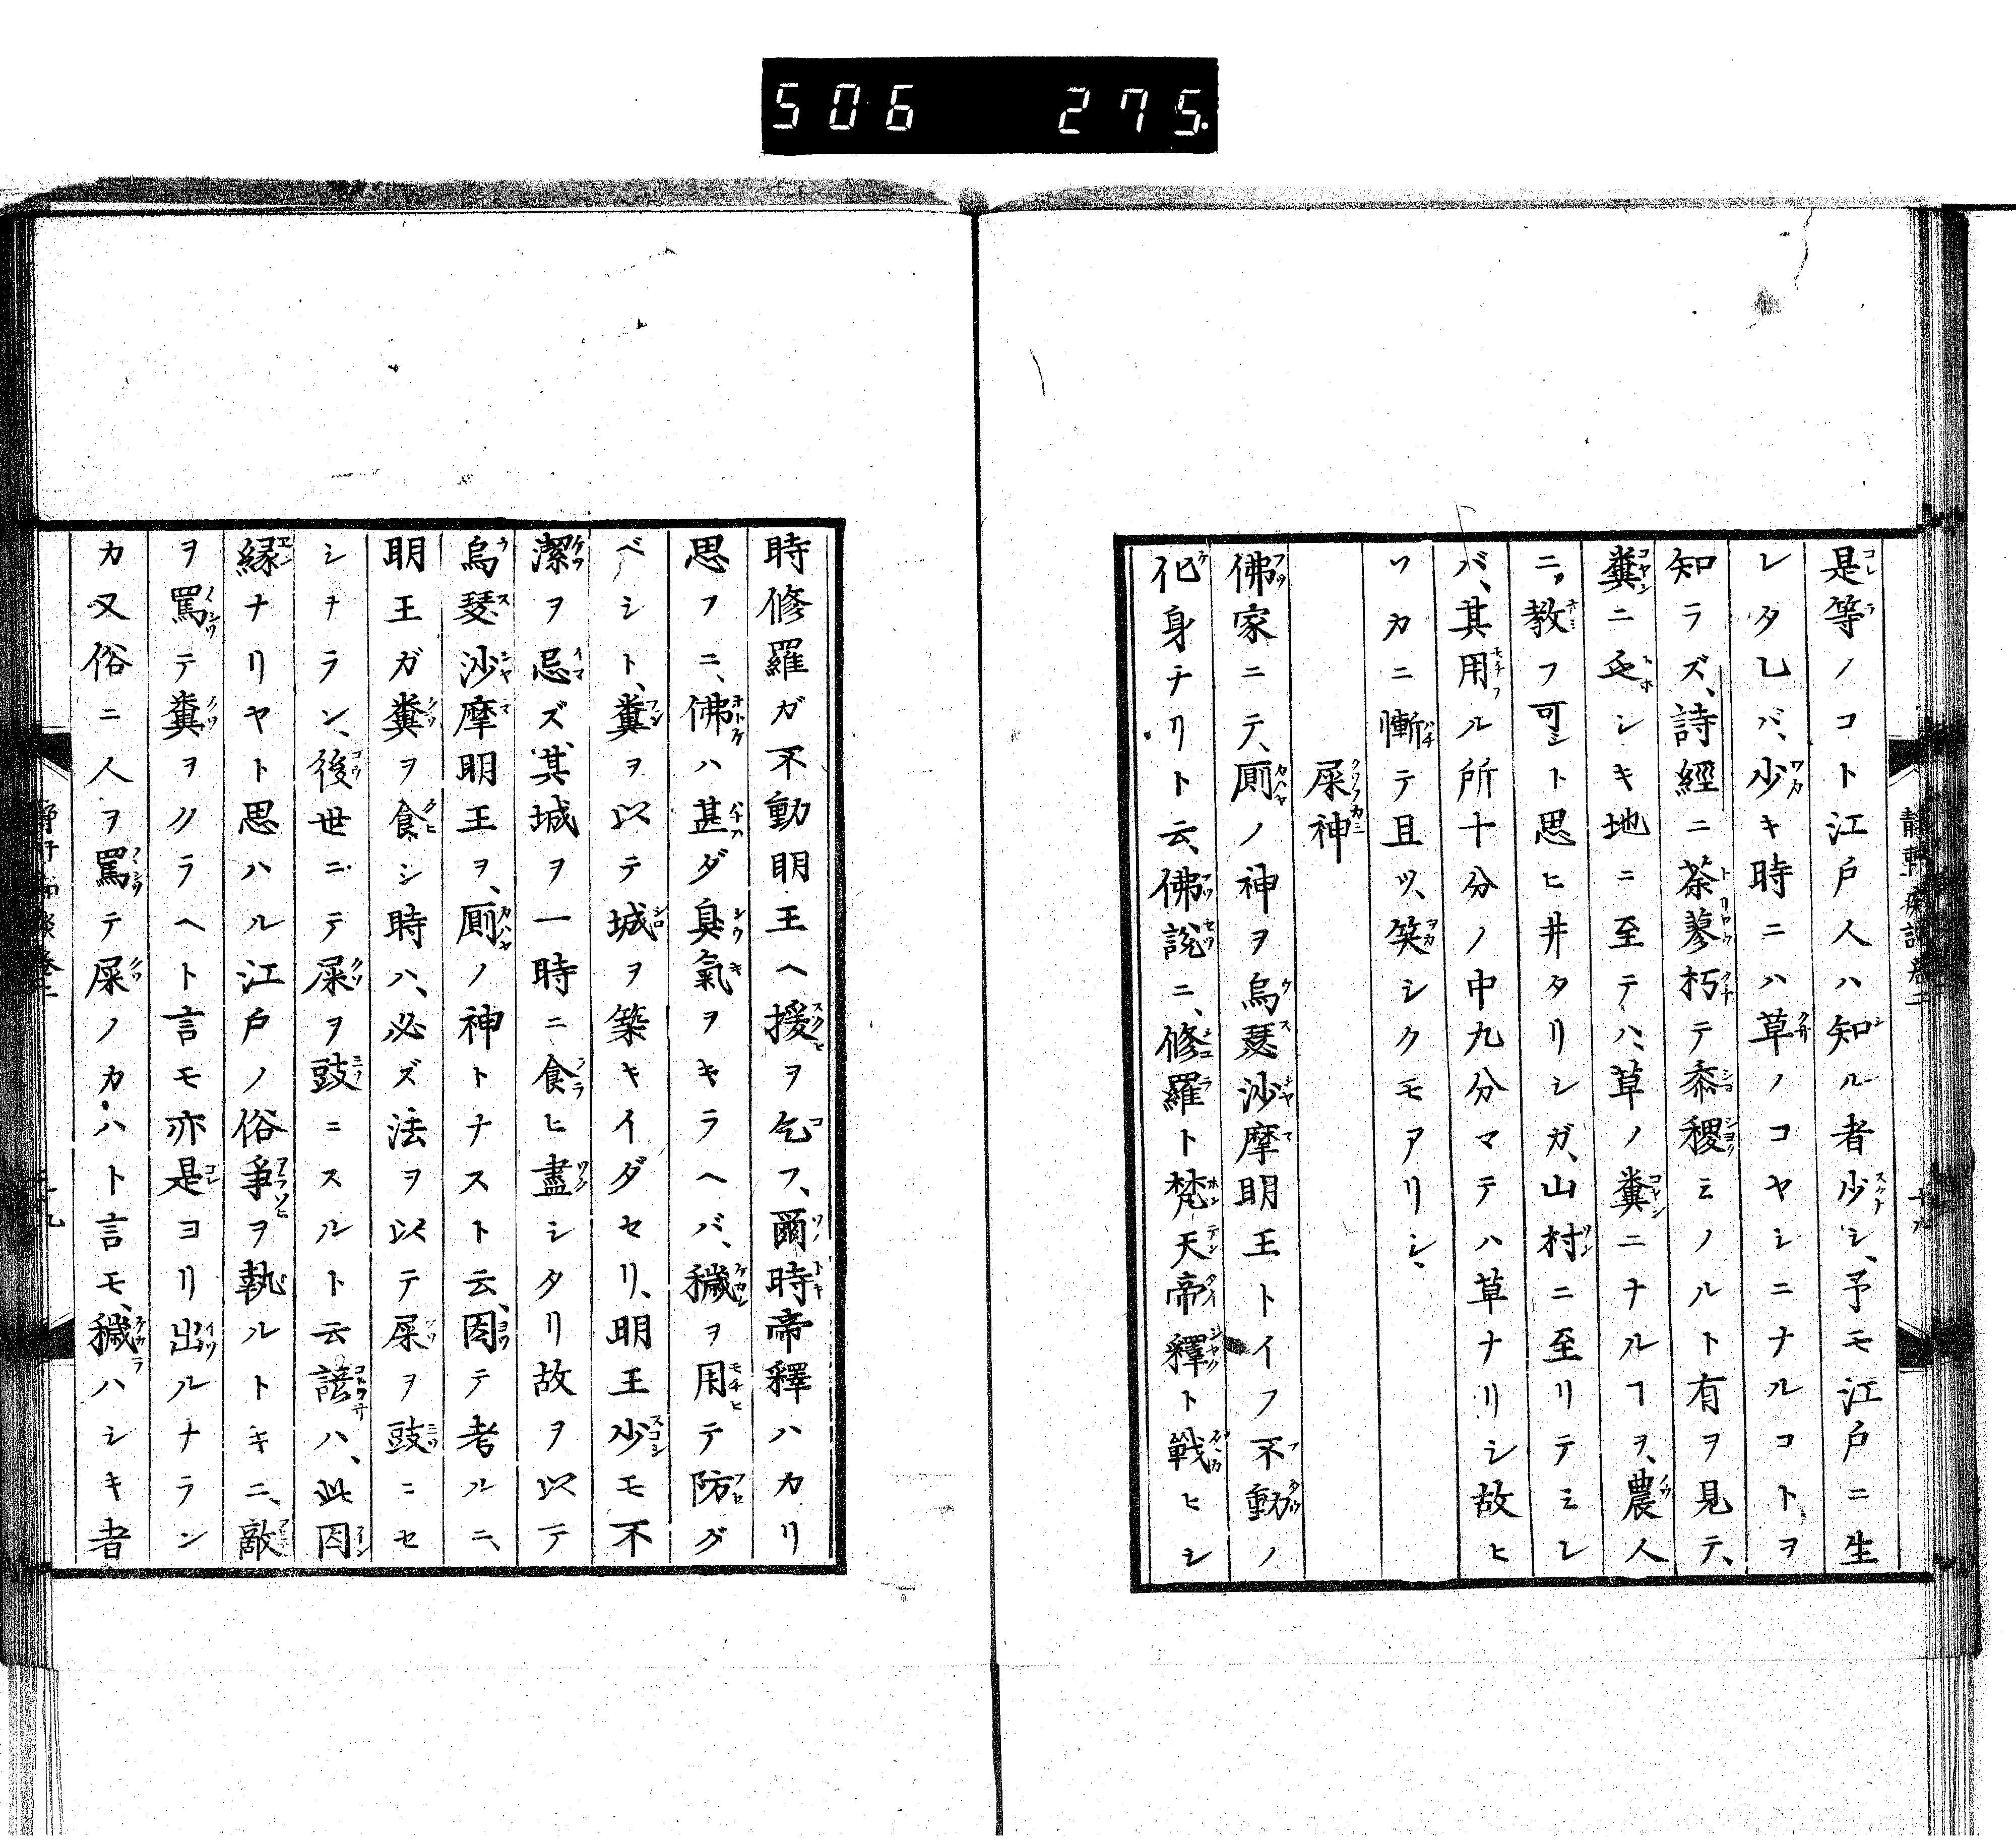 506 275.
是等ノコト江戸人ハ知ル者少シ、予モ江戸ニ生
レタレバ、少キ時ニハ草ノコヤシニナルコトヲ
知ラズ、詩經ニ荼蓼朽テ黍稷ミノルト有ヲ見テ、
糞ニ乏シキ地ニ至テハ、草ノ糞ニナルヿヲ、農人
ニ教フ可シト思ヒ井タリシガ、山村ニ至リテミレ
バ、其用ル所十分ノ中九分マテハ草ナリシ故ヒ
ソカニ慚テ且ツ、笑シクモアリシ、
屎神
佛家ニテ、厠ノ神ヲ烏瑟沙摩明王トイフ不動ノ
化身ナリト云、佛說ニ、修羅ト梵天帝釋ト戰ヒシ
時修羅ガ不動明王ヘ援ヲ乞フ、爾時帝釋ハカリ
思フニ、佛ハ甚ダ臭氣ヲキラヘバ、穢ヲ用テ防グ
ベシト、糞ヲ以テ城ヲ築キイダセリ、明王少モ不
潔ヲ忌ズ其城ヲ一時ニ食ヒ盡シタリ故ヲ以テ
烏瑟沙摩明王ヲ、厠ノ神トナスト云、因テ考ルニ、
明王ガ糞ヲ食シ時ハ、必ズ法ヲ以テ屎ヲ豉ニセ
シナラン、後世ニテ屎ヲ豉ニスルト云諺ハ、此因
緣ナリヤト思ハル江戸ノ俗爭ヲ執ルトキニ、敵
ヲ罵テ糞ヲクラヘト言モ亦是ヨリ出ルナラン
カ又俗ニ人ヲ罵テ屎ノカハト言モ、穢ハシキ者